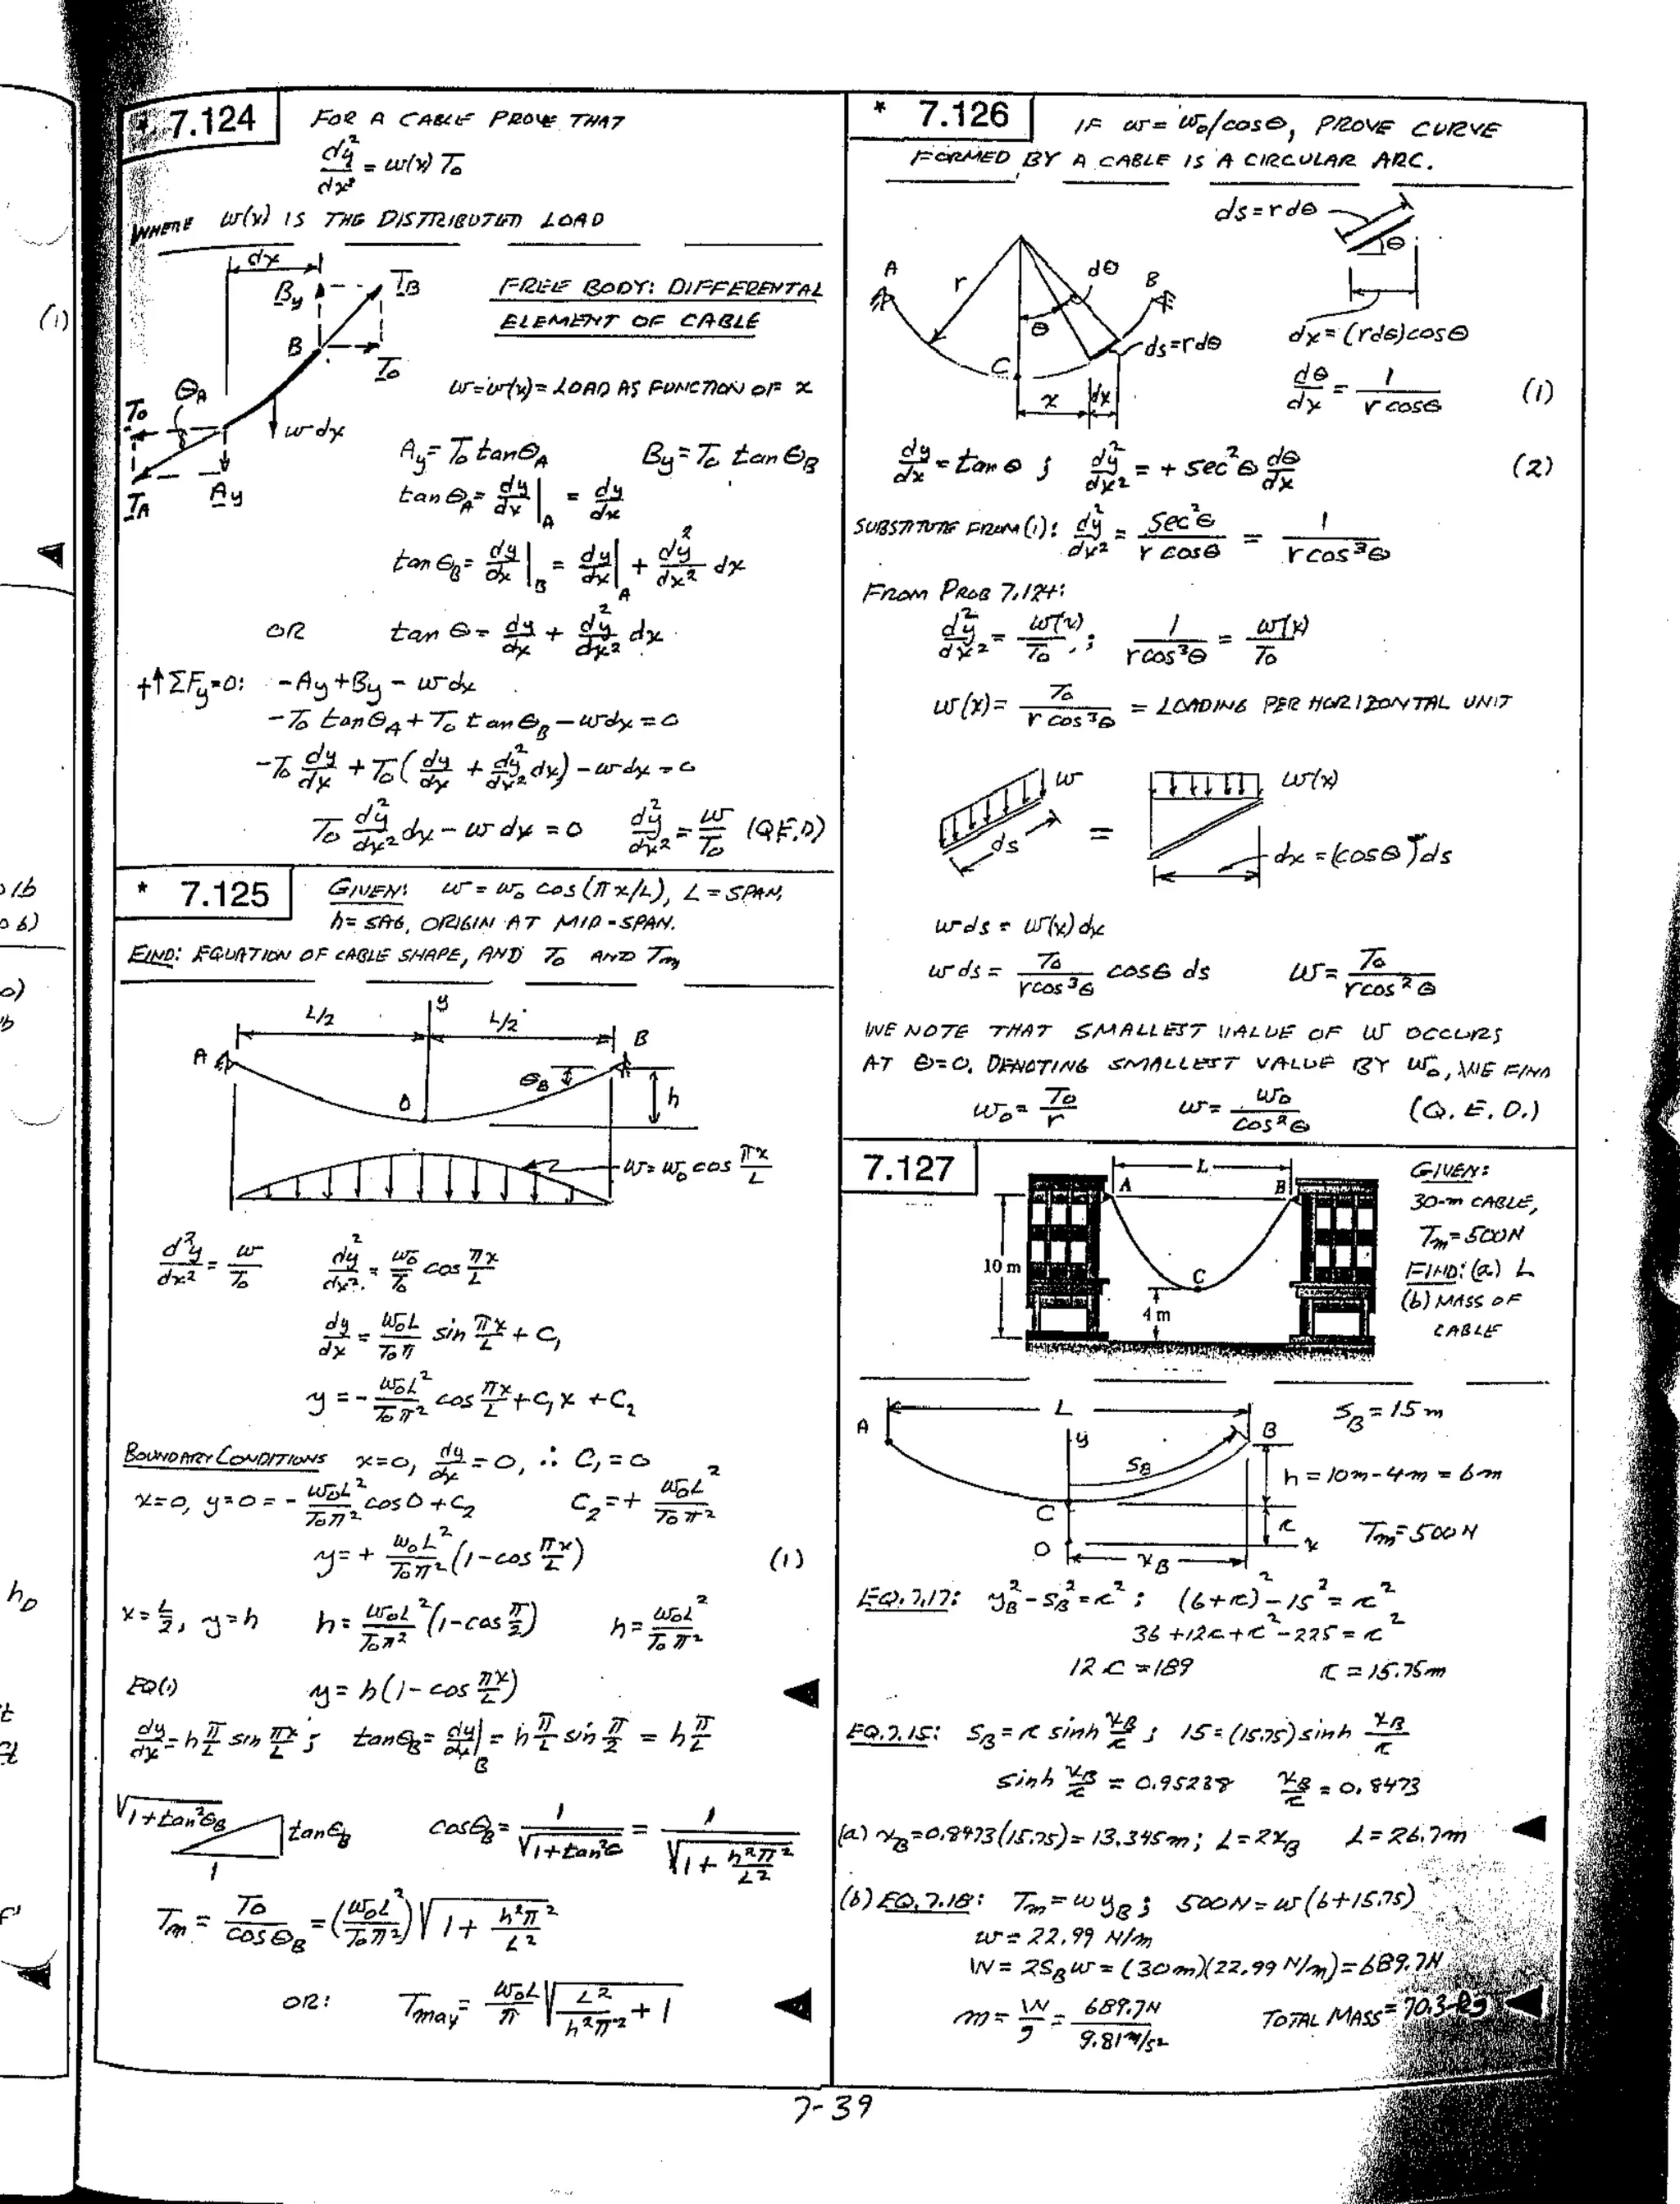 * 7.124
FOR A CABLE PROVE THAT
d²y/dx² = w(x) T₀
WHERE w(x) IS THE DISTRIBUTED LOAD
dx
By
T_B
B
T₀
θ_A
T₀
w dx
T_A
Ay
FREE BODY: DIFFERENTIAL
ELEMENT OF CABLE
w = w(x) = LOAD AS FUNCTION OF x
Ay = T₀ tanθ_A By = T₀ tan θ_B
tan θ_A = dy/dx|_A = dy/dx
tan θ_B = dy/dx|_B = dy/dx|_A + d²y/dx² dx
OR tan θ = dy/dx + d²y/dx² dx
+↑ΣFy=0: -Ay + By - w dx
-T₀ tan θ_A + T₀ tan θ_B - w dx = 0
-T₀ dy/dx + T₀ (dy/dx + d²y/dx² dx) - w dx = 0
T₀ d²y/dx² dx - w dx = 0 d²y/dx² = w/T₀ (Q.E.D)
* 7.125
GIVEN: w = w₀ cos(πx/L), L = SPAN,
h = SAG, ORIGIN AT MID-SPAN.
FIND: EQUATION OF CABLE SHAPE, AND T₀ AND Tm
L/2
y
L/2
A
B
θ_B
h
O
w = w₀ cos πx/L
d²y/dx² = w/T₀ d²y/dx² = w₀/T₀ cos πx/L
dy/dx = w₀L/T₀π sin πx/L + C₁
y = - w₀L²/T₀π² cos πx/L + C₁x + C₂
BOUNDARY CONDITIONS x=0, dy/dx = 0, ∴ C₁ = 0
x=0, y=0 = - w₀L²/T₀π² cos 0 + C₂ C₂ = + w₀L²/T₀π²
y = + w₀L²/T₀π² (1 - cos πx/L) (1)
x = L/2, y = h h = w₀L²/T₀π² (1 - cos π/2) h = w₀L²/T₀π²
EQ(1) y = h(1 - cos πx/L)
dy/dx = h π/L sin πx/L ; tanθ_B = dy/dx|_B = h π/L sin π/2 = h π/L
√1+tan²θ_B
tanθ_B
1
cosθ_B = 1/√1+tan²θ = 1/√1 + h²π²/L²
Tm = T₀/cosθ_B = (w₀L²/T₀π²) √1 + h²π²/L²
OR: Tmax = w₀L/π √L²/h²π² + 1
* 7.126
IF w = w₀/cosθ, PROVE CURVE
FORMED BY A CABLE IS A CIRCULAR ARC.
ds = r dθ
θ
A
r
dθ
B
θ
ds = rdθ
C
x
dx
dx = (rdθ)cosθ
dθ/dx = 1/r cosθ (1)
dy/dx = tan θ ; d²y/dx² = + sec²θ dθ/dx (2)
SUBSTITUTE FROM (1): d²y/dx² = sec²θ/r cosθ = 1/r cos³θ
FROM PROB 7.124:
d²y/dx² = w(x)/T₀ ; 1/r cos³θ = w(x)/T₀
w(x) = T₀/r cos³θ = LOADING PER HORIZONTAL UNIT
w
ds
=
w(x)
dx = (cosθ) ds
w ds = w(x) dx
w ds = T₀/r cos³θ cosθ ds w = T₀/r cos²θ
WE NOTE THAT SMALLEST VALUE OF w OCCURS
AT θ=0. DENOTING SMALLEST VALUE BY w₀, WE FIND
w₀ = T₀/r w = w₀/cos²θ (Q.E.D.)
7.127
L
A
B
10 m
C
4 m
GIVEN:
30-m CABLE,
Tm = 500N
FIND: (a) L
(b) MASS OF
CABLE
A
L
B
y
s_B
C
O
x_B
c
x
s_B = 15 m
h = 10m - 4m = 6m
Tm = 500 N
EQ. 7.17: y_B² - s_B² = c² ; (6+c)² - 15² = c²
36 + 12c + c² - 225 = c²
12 c = 189 c = 15.75m
EQ. 7.15: s_B = c sinh x_B/c ; 15 = (15.75) sinh x_B/c
sinh x_B/c = 0.95238 x_B/c = 0.8473
(a) x_B = 0.8473(15.75) = 13.345m ; L = 2x_B L = 26.7m
(b) EQ. 7.18: Tm = w y_B ; 500N = w (6+15.75)
w = 22.99 N/m
W = 2s_B w = (30m)(22.99 N/m) = 689.7N
m = W/g = 689.7N/9.81 m/s² TOTAL MASS = 70.3 kg
7-39